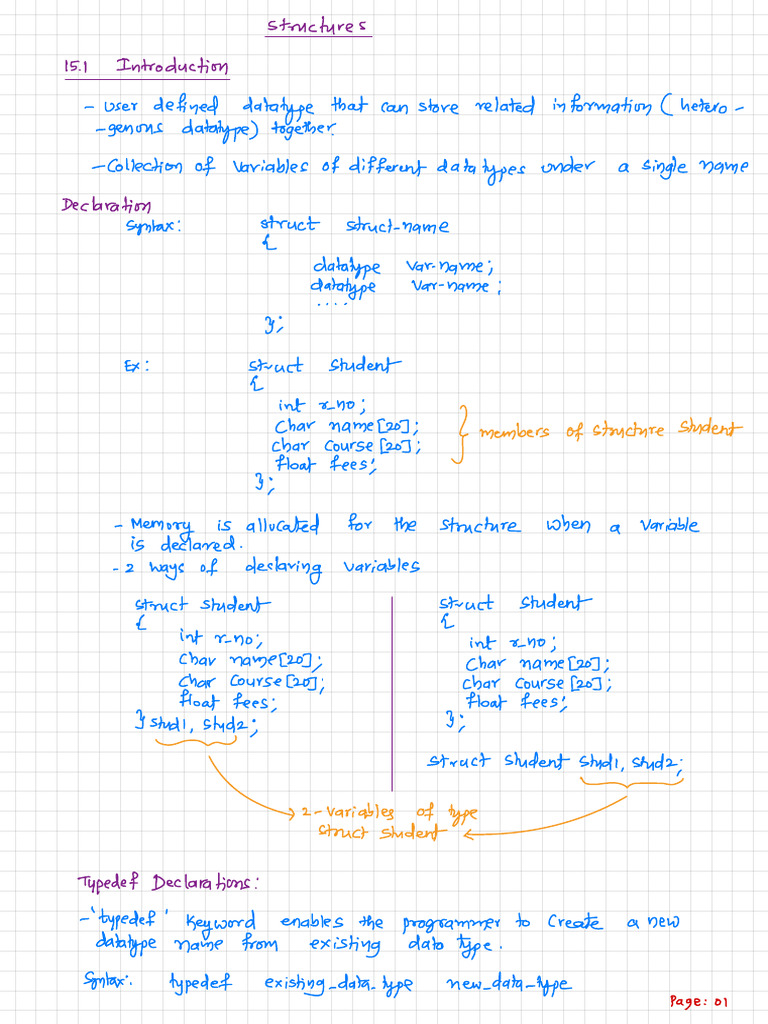 Structures
15.1 Introduction
- User defined datatype that can store related information (hetero-
-genous datatype) together.
- Collection of variables of different data types under a single name
Declaration
Syntax: struct struct-name
{
datatype var-name;
datatype var-name;
....
};
Ex: struct student
{
int r_no;
char name[20];
char course[20];
float fees;
};
members of structure student
- Memory is allocated for the structure when a variable
is declared.
- 2 ways of declaring variables
struct student
{
int r_no;
char name[20];
char course[20];
float fees;
} stud1, stud2;
struct student
{
int r_no;
char name[20];
char course[20];
float fees;
};
struct student stud1, stud2;
2-variables of type
struct student
Typedef Declarations:
- 'typedef' keyword enables the programmer to create a new
datatype name from existing data type.
Syntax: typedef existing_data_type new_data_type
Page: 01